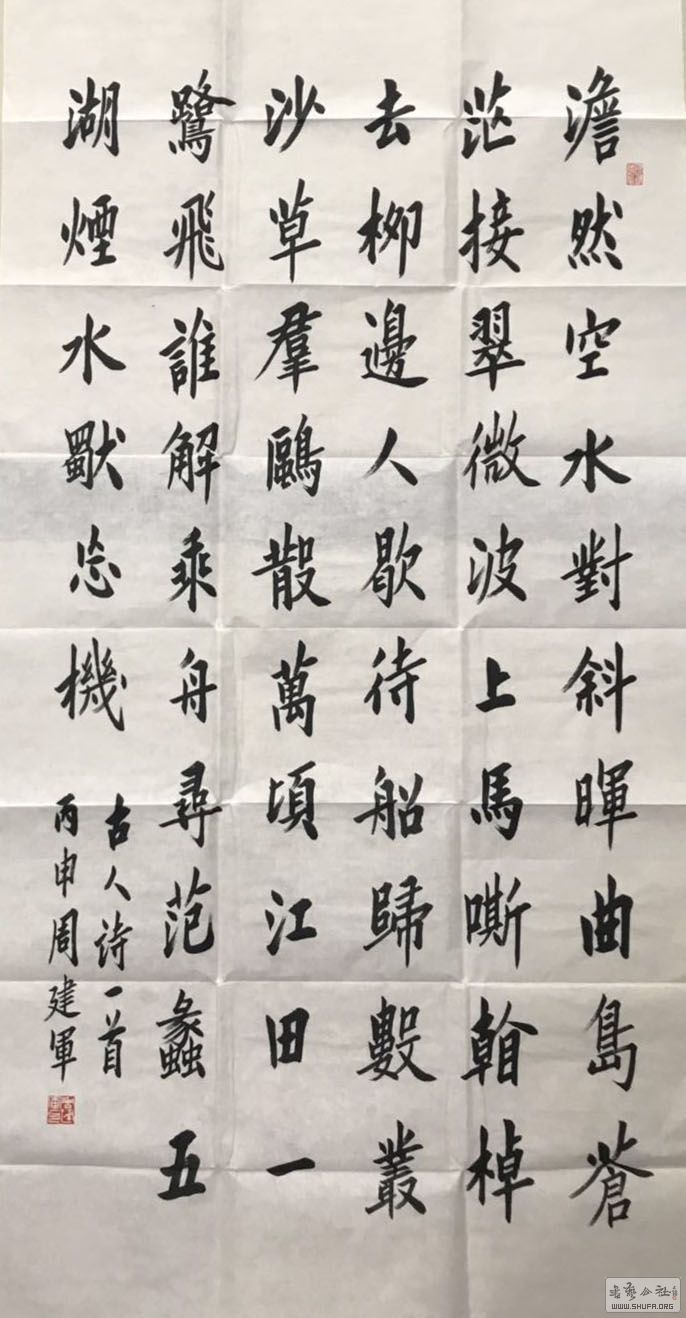 澹然空水對斜暉曲島蒼
茫接翠微波上馬嘶棹
去柳邊人歇待船歸數叢
沙草羣鷗散萬頃江田一
鷺飛誰解乘舟尋范蠡五
湖煙水獨忘機
古人诗一首
丙申周建軍
书艺公社
WWW.SHUFA.ORG